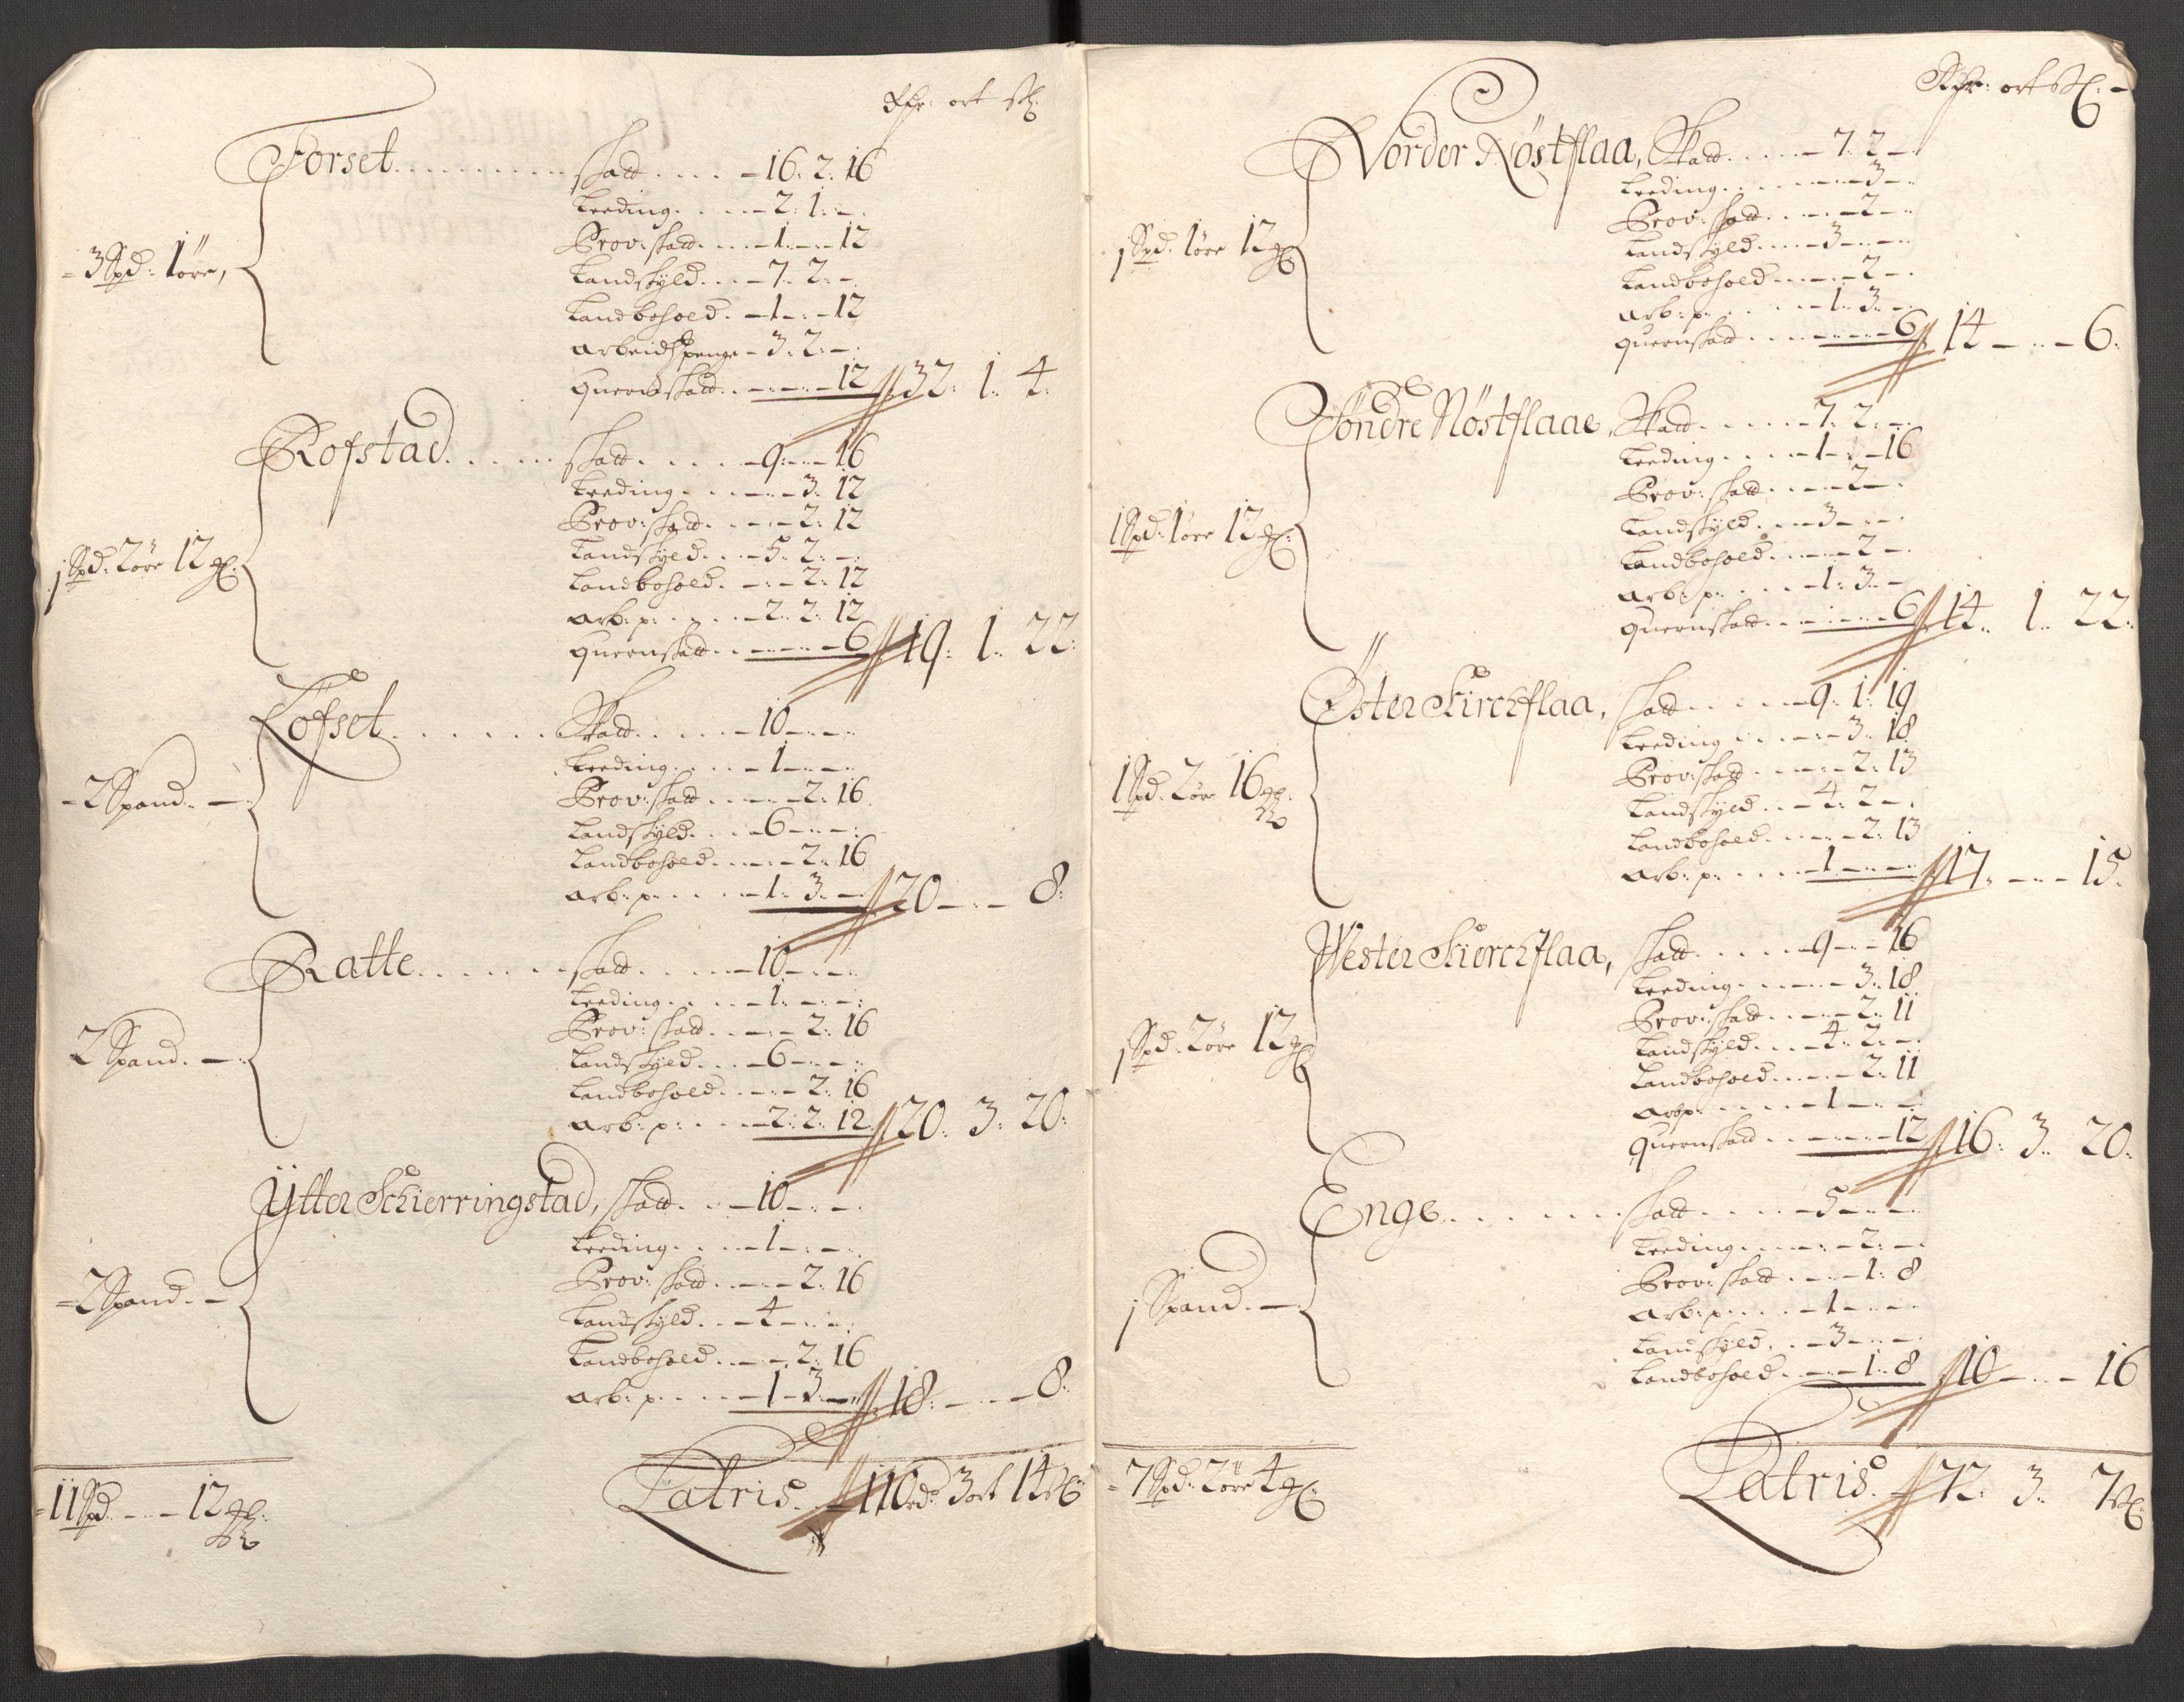 Rdr: ort sk:
Forset . . . . . . . . . skatt . . . . - 16: 2: 16
Leeding . . . . - 2: 1: -
Prov: skatt . . . - 1 - - 12
- 3 Spd: 1 øre,
Landskyld . . . - 7: 2: -
Landbohold . - 1 - : - 12
arbeids penge - 3: 2: -
Quernskatt . . - - - - 12 // 32: 1: 4:
Rofstad . . . . . skatt . . . . . - 9: - - 16
Leeding . . . - - - 3: 12
Prov: skatt . . . - - 2: 12
1 Spd: 2 øre 12 gl:
Landskyld . . - 5: 2: -
Landbohold . - : - 2: 12
arb: p: . . . . - 2: 2: 12
Quernskatt . - - - - - 6 // 19: 1: 22:
Lofset . . . . . . Skatt . . . . - 10 - - -
Leeding . . . . - 1 - - -
Prov: skatt . . . . - 2: 16
- 2 Spand. -
Landskyld . . . - 6 - - -
Landbohold . . - - - 2: 16
arb: p: . . . . - 1: 3: - // 20 - : - 8:
Ratte . . . . . . . skatt . . . . - 10 - - -
Leeding . . . . - 1: - - -
Prov: skatt . . . - - 2: 16
2 Spand. -
Landskyld . . . - 6 - - -
Landbohold . . - - 2: 16
arb: p: . . . . - 2: 2: 12 // 20: 3: 20:
Ÿtter Schierringstad, skatt . . - 10 - - -
Leeding . . . . - 1 - : -
Prov: skatt . . - - - 2: 16
- 2 Spand. -
Landskyld . . - 4 - - -
Landbohold . . - - 2: 16
arb: p: . . . . - 1 - 3 - // 18: - - - 8:
- 11 Spd - - - 12 gl:
Latris. // 110 rd: 3 ort 14 sk:
Rdr: ort sk: -
Norder Nöstflaa, Skatt . . . . - 7: 2 -
Leeding . . . . - - - 3 -
Prov: skatt . . . . - 2 -
1 Spd: 1 øre 12 gl:
Landskyld . . . . - 3 - - -
Landbohold . . - - - 2 -
arb: p: . . . . - 1: 3: -
Quernskatt . . . - - - - 6 // 14 - - - 6:
Söndre Nöstflaae, Skatt . . . . . - 7: 2: -
Leeding . . . . - 1 - - 16
Prov: skatt . . . . - 2 - -
1 Spd: 1 øre 12 gl:
Landskyld . . . - 3 - - -
Landbohold . . - - - 2 -
arb: p: . . . . - 1: 3: -
Quernskatt . . - - - - 6 // 14: 1: 22:
Öster Kirchflaa, skatt . . . . . - 9: 1: 19
Leeding . . . . - : - 3: 18
Prov: skatt . . . . - - 2: 13
1 Spd: 2 øre 16 gl:
Landskyld . . - 4: 2 -
Landbohold . . - - - 2: 13
arb: p: . . . . - 1 - - - // 17: - - - 15:
Wester Kierchflaa, skatt . . . . . - 9 - - 16
Leeding . . . . - - 3: 18
Prov: skatt . . . . - - 2: 11
1 Spd: 2 øre 12 gl:
Landskyld . . . - 4: 2: -
Landbohold . . . - - 2: 11
arbp: . . . . - 1 - - -
Quernskatt . . - - - - 12 // 16: 3: 20:
Enge . . . . . . . skatt . . . . . - 5 - - -
Leeding . . . . - : - 2: -
Prov: skatt . . . . - 1: 8
1 Spand. -
arb: p: . . . . - 1 - - -
Landskyld . . . - 3 - - -
Landbohold . - - - 1: 8 // 10 - - - 16
- 7 Spd: 2 øre 4 gl:
Latris. // 72: 3: 7 sk: